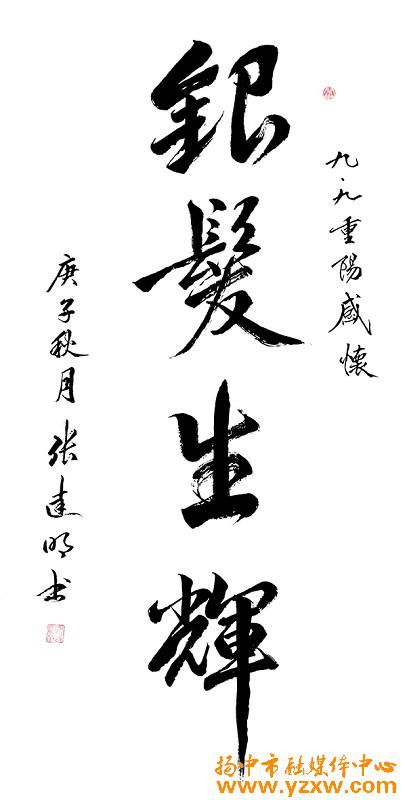 九·九重陽感懷
銀髮生輝
庚子秋月张建明书
扬中市融媒体中心
www.yzxw.com